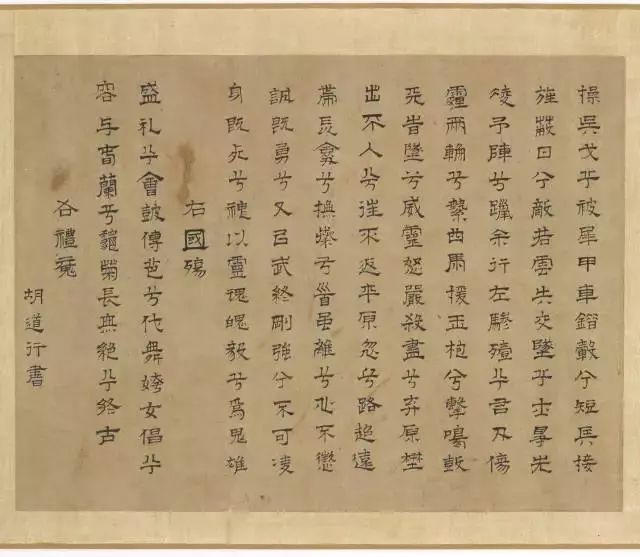 操吳戈兮被犀甲車錯轂兮短兵接
旌蔽日兮敵若雲矢交墜兮士爭先
凌予陣兮躐余行左驂殪兮右刃傷
霾兩輪兮縶四馬援玉枹兮擊鳴鼓
天時墜兮威靈怒嚴殺盡兮棄原壄
出不入兮往不返平原忽兮路超遠
帶長劍兮挾秦弓首雖離兮心不懲
誠既勇兮又以武終剛強兮不可凌
身既死兮神以靈魂魄毅兮為鬼雄
右國殤
盛礼兮會鼓傳芭兮代舞姱女倡兮
容与春蘭兮秋菊長無絕兮終古
右禮魂
胡道行書